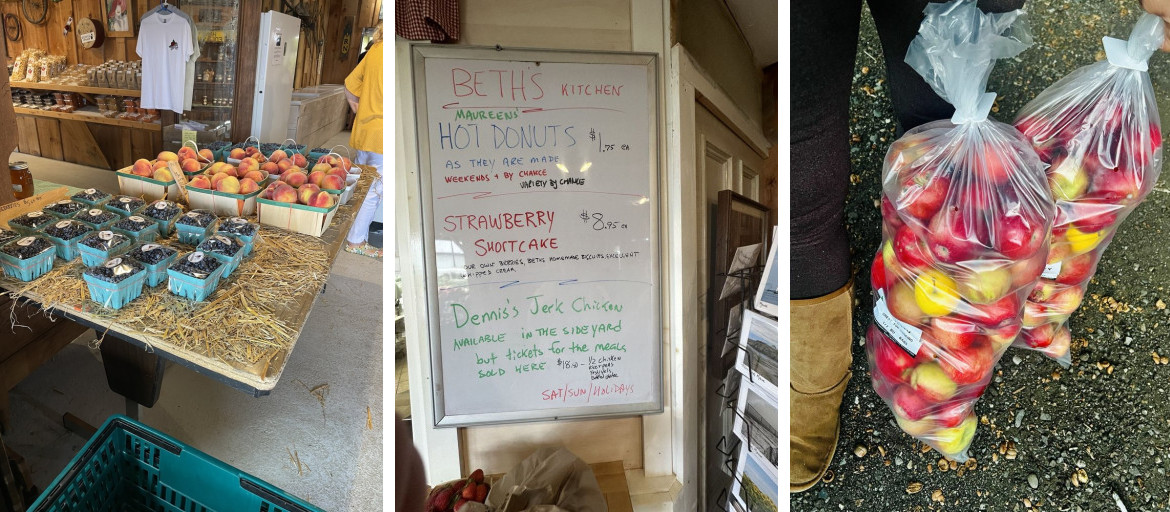 BETH'S KITCHEN
MAUREENS'
HOT DONUTS $1.75 EA
AS THEY ARE MADE
WEEKENDS + BY CHANCE
VARIETY BY CHANCE
STRAWBERRY $8.95 EA
SHORTCAKE
OUR OWN BERRIES, BETHS HOMEMADE BISCUITS, EXCELLENT
WHIPPED CREAM
Dennis's Jerk Chicken
AVAILABLE IN THE SIDEYARD
but tickets for the meals
SOLD HERE $18.00 - 1/2 chicken
SAT/SUN/HOLIDAYS